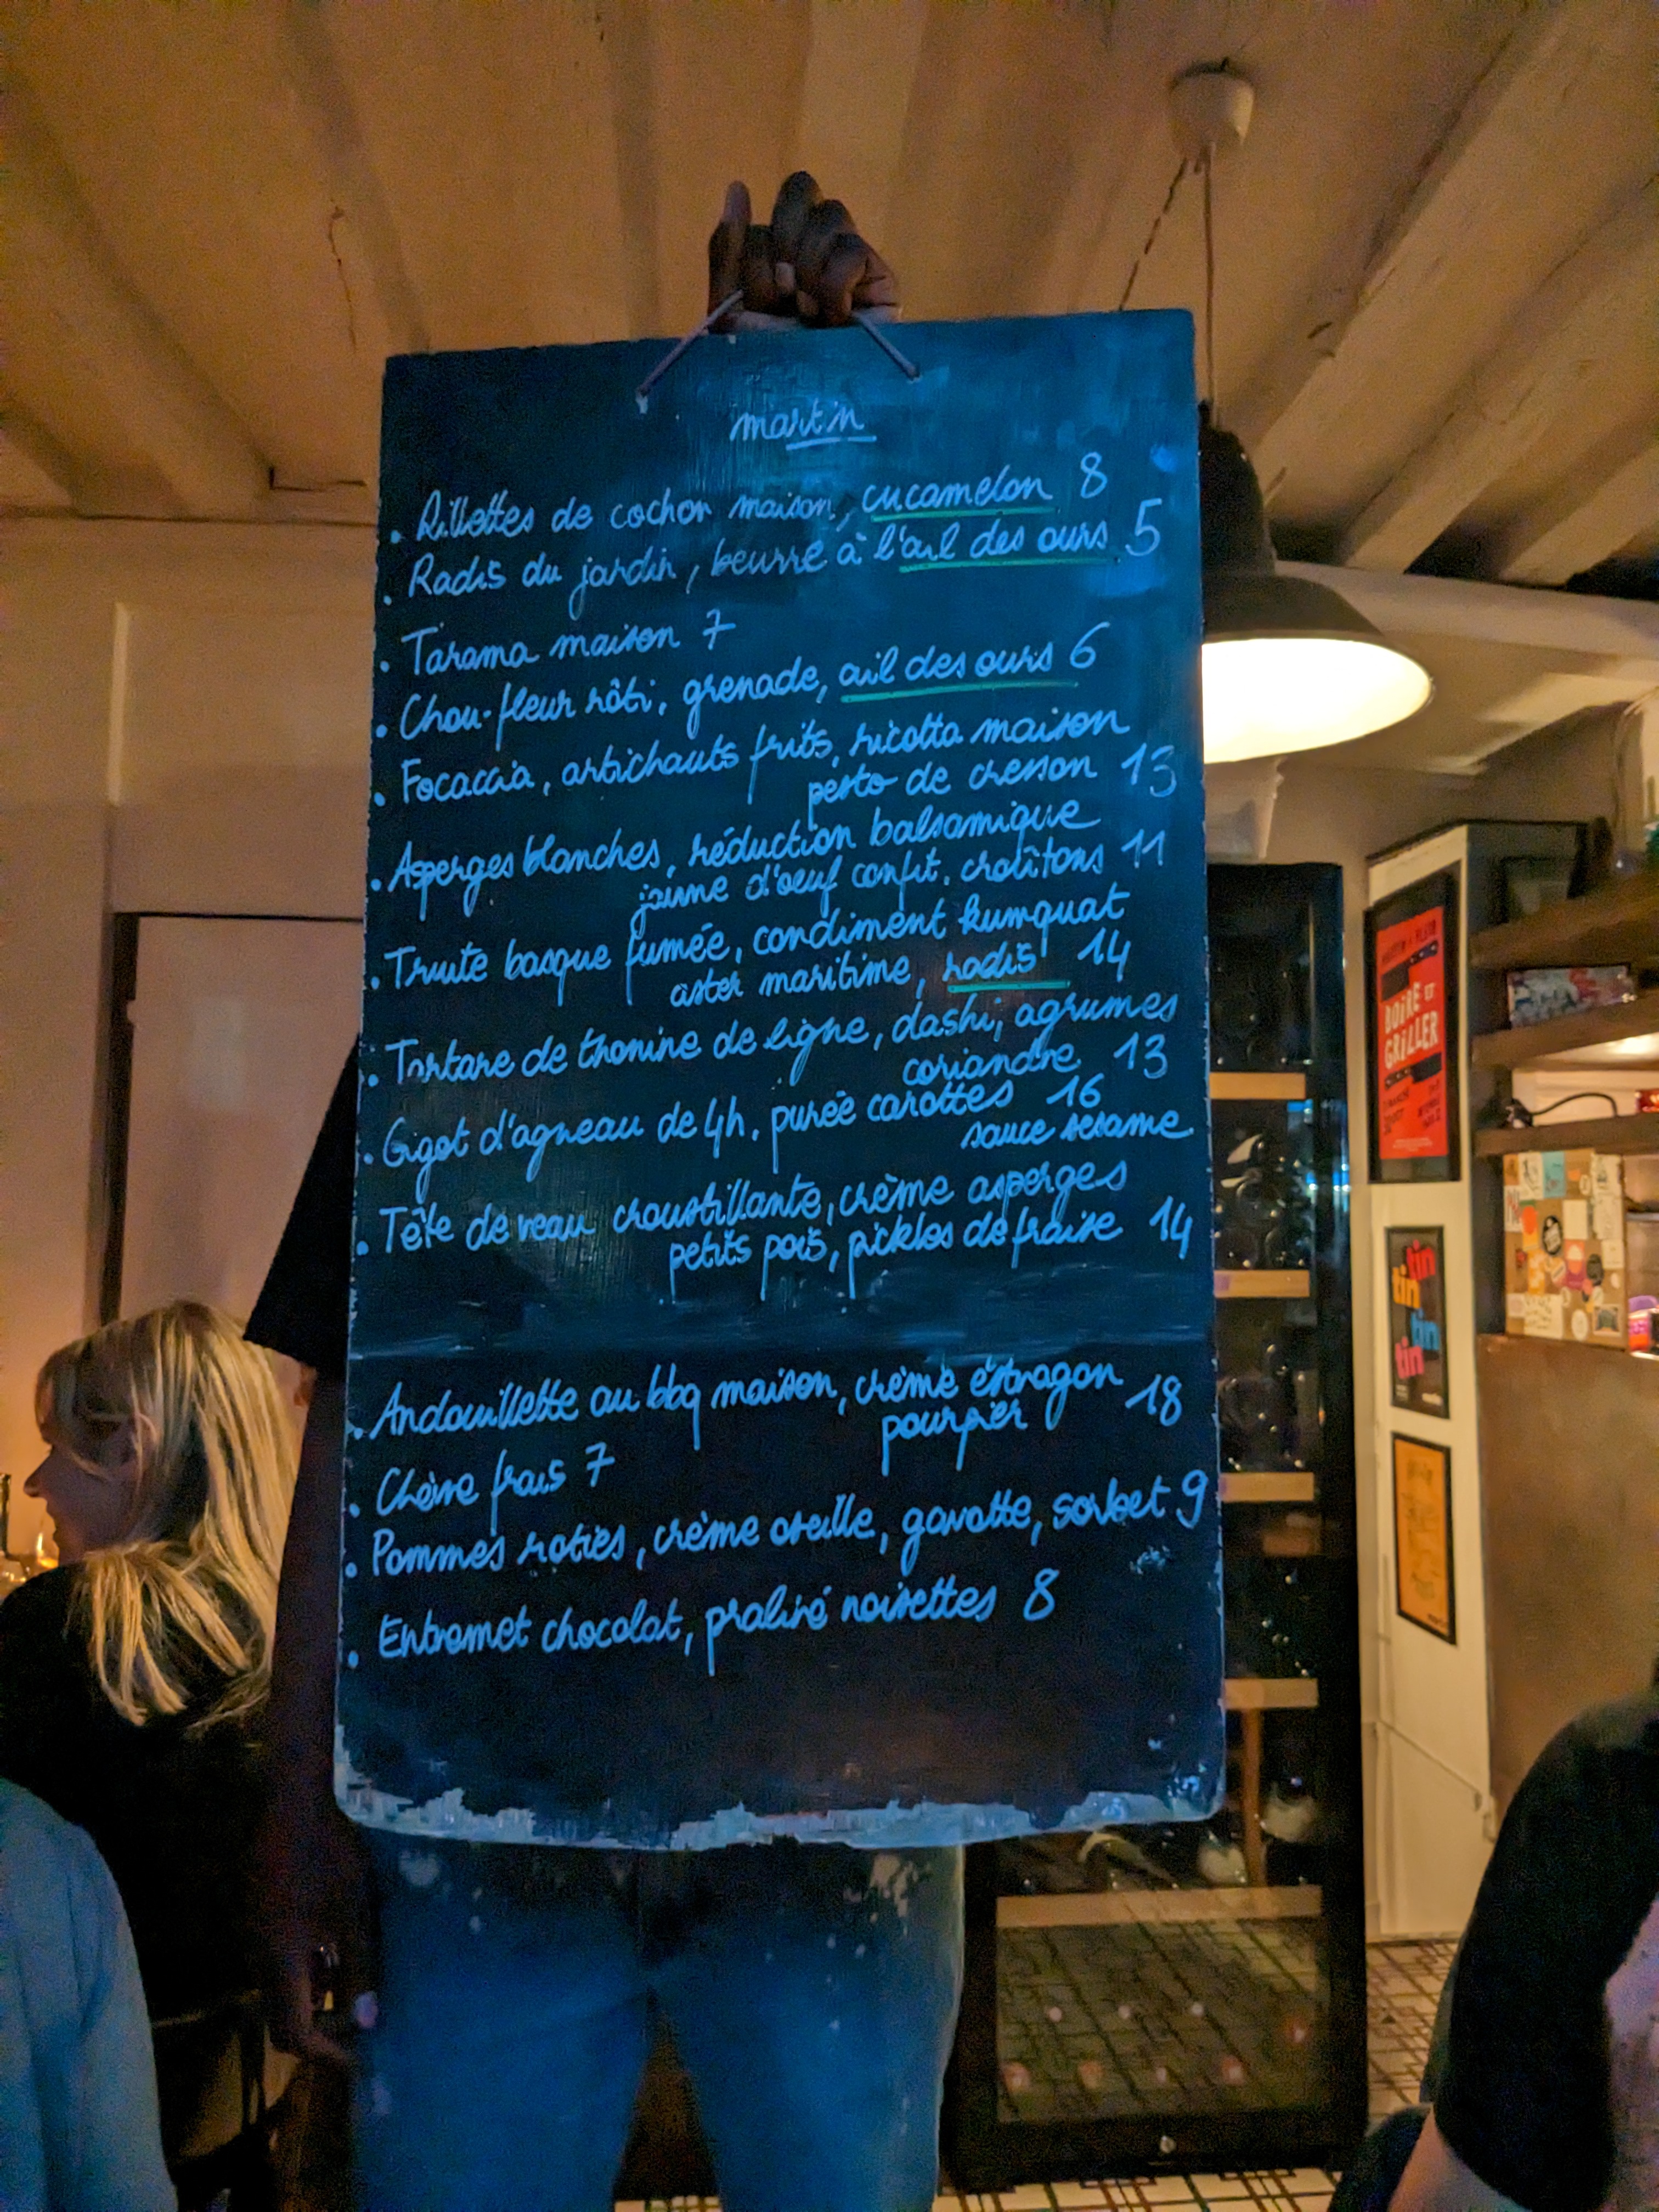 martin
. Rillettes de cochon maison, cucamelon 8
. Radis du jardin, beurre à l'ail des ours 5
. Tarama maison 7
. Chou-fleur rôti, grenade, ail des ours 6
. Focaccia, artichauts frits, ricotta maison
pesto de cresson 13
. Asperges blanches, réduction balsamique
jaune d'oeuf confit, croûtons 11
. Truite basque fumée, condiment kumquat
aster maritime, radis 14
. Tartare de thonine de ligne, dashi, agrumes
coriandre 13
. Gigot d'agneau de 4h, purée carottes 16
sauce sesame
. Tête de veau croustillante, crème asperges
petits pois, pickles de fraise 14
. Andouillette au bbq maison, crème éstragon
pourpier 18
. Chèvre frais 7
. Pommes roties, crème oseille, gavotte, sorbet 9
. Entremet chocolat, praliné noisettes 8
BOIRE ET
GRILLER
tin
tin
tin
tin